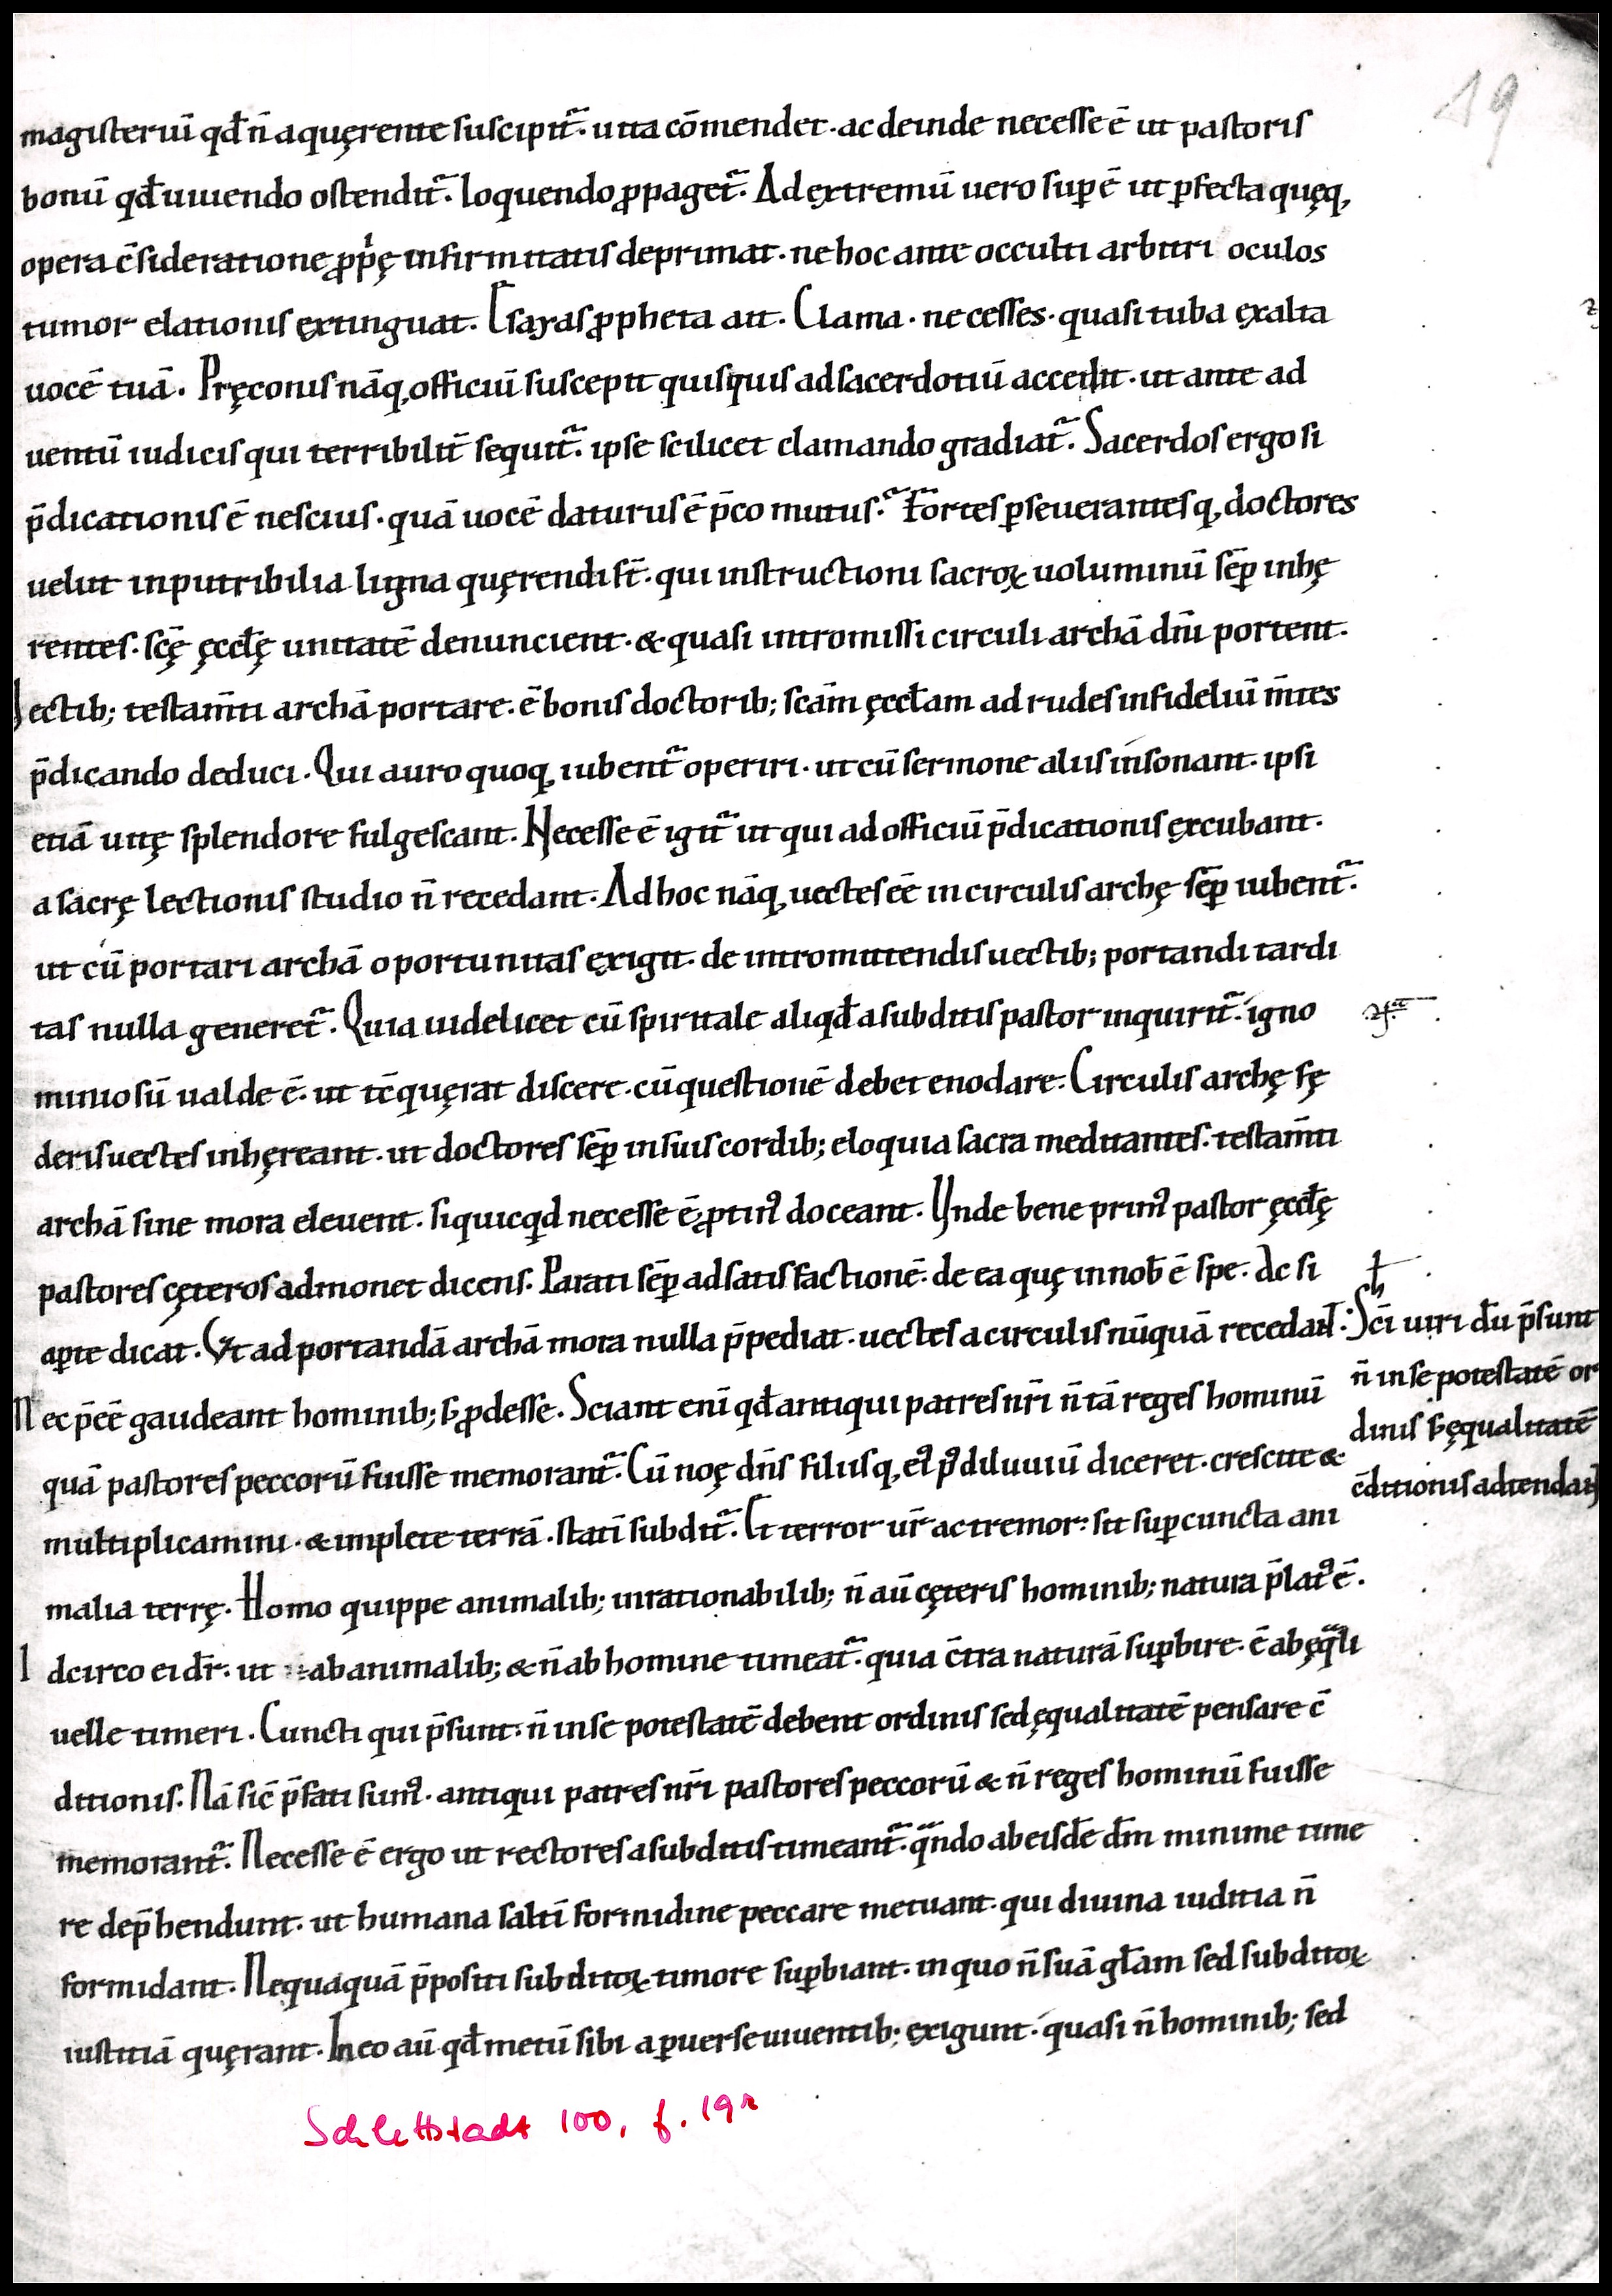 19
magisteriū qđ n̄ a quęrente suscipit᷑. uita cōmendet. ac deinde necesse ē ut pastoris
bonū qđ uiuendo ostendit᷑. loquendo ꝓpaget᷑. Ad extremū uero suꝑ ē ut ꝑfecta quęq,
opera c̄sideratione ꝓpͥę infirmitatis deprimat. ne hoc ante occulti arbitri oculos
tumor elationis extinguat. Esayas ꝓpheta ait. Clama. ne cesses. quasi tuba exalta
uocē tuā. Pręconis nāq, officiū suscepit quisquis ad sacerdotiū accedit. ut ante ad
uentū iudicis qui terribilit̄ sequit᷑. ipse scilicet clamando gradiat᷑. Sacerdos ergo si
p̄dicationis ē nescius. quā uocē daturus ē p̄co mutus? Fortes ꝑseuerantesq, doctores
uelut inputribilia ligna quęrendi st̄. qui instructioni sacroꝝ uoluminū sēꝑ inhę
rentes. scę̄ ęccłę unitatē denuncient. & quasi intromissi circuli archā dn̄i portent.
Uectib; testam̄ti archā portare. ē bonis doctorib; scām ęccłam ad rudes infideliū m̄tes
p̄dicando deduci. Qui auro quoq, iubent᷑ operiri. ut cū sermone aliis insonant. ipsi
etiā uitę splendore fulgescant. Necesse ē igit᷑ ut qui ad officiū p̄dicationis excubant.
a sacrę lectionis studio n̄ recedant. Ad hoc nāq, uectes eē in circulis archę sēꝑ iubent᷑.
ut cū portari archā oportunitas exigit. de intromittendis uectib; portandi tardi
tas nulla generet᷑. Quia uidelicet cū spiritale aliqđ a subditis pastor inquirit᷑. igno
miniosū ualde ē. ut tc̄ quęrat discere. cū questionē debet enodare. Circulis archę fę
deris uectes inhęreant. ut doctores sēꝑ in suis cordib; eloquia sacra meditantes. testam̄ti
archā sine mora eleuent. si quicqđ necesse ē. ꝓtinꝰ doceant. Unde bene primꝰ pastor ęccłę
pastores cęteros admonet dicens. Parati sēꝑ ad satisfactionē. de ea quę in nob̄ ē spe. Ac si
aꝑte dicat. Ut ad portandā archā mora nulla p̄pediat. uectes a circulis nūquā recedant.
Nec p̄eē gaudeant hominib; s; ꝓdesse. Sciant enī qđ antiqui patres nr̄i n̄ tā reges hominū
quā pastores peccorū fuisse memorant᷑. Cū noę dn̄s filiisq, eiꝰ pꝰ diluuiū diceret. crescite &
multiplicamini. & implete terrā. statī subdit᷑. Et terror ur̄ ac tremor: sit suꝑ cuncta ani
malia terrę. Homo quippe animalib; inrationabilib; n̄ aū cęteris hominib; natura p̄latꝰ ē.
Idcirco ei dr̄. ut ab animalib; & n̄ ab homine timeat᷑. quia c̄tra naturā suꝑbire. ē ab ęq̄li
uelle timeri. Cuncti qui p̄sunt. n̄ in se potestatē debent ordinis sed ęqualitatē pensare c̄
ditionis. Nā sic̄ p̄fati sumꝰ. antiqui patres nr̄i pastores peccorū & n̄ reges hominū fuisse
memorant᷑. Necesse ē ergo ut rectores a subditis timeant᷑. qn̄do ab eisdē dm̄ minime time
re dep̄hendunt. ut humana saltī formidine peccare metuant. qui diuina iuditia n̄
formidant. Nequaquā p̄positi subditoꝝ timore suꝑbiant. in quo n̄ suā głam sed subditoꝝ
iustitiā quęrant. In eo aū qđ metū sibi a ꝑuerse uiuentib; exigunt. quasi n̄ hominib; sed
Sc̄i uiri dū p̄sunt
n̄ in se potestatē or
dinis s; ęqualitatē
c̄ditionis adtendant
Schlettstadt 100, f. 19r